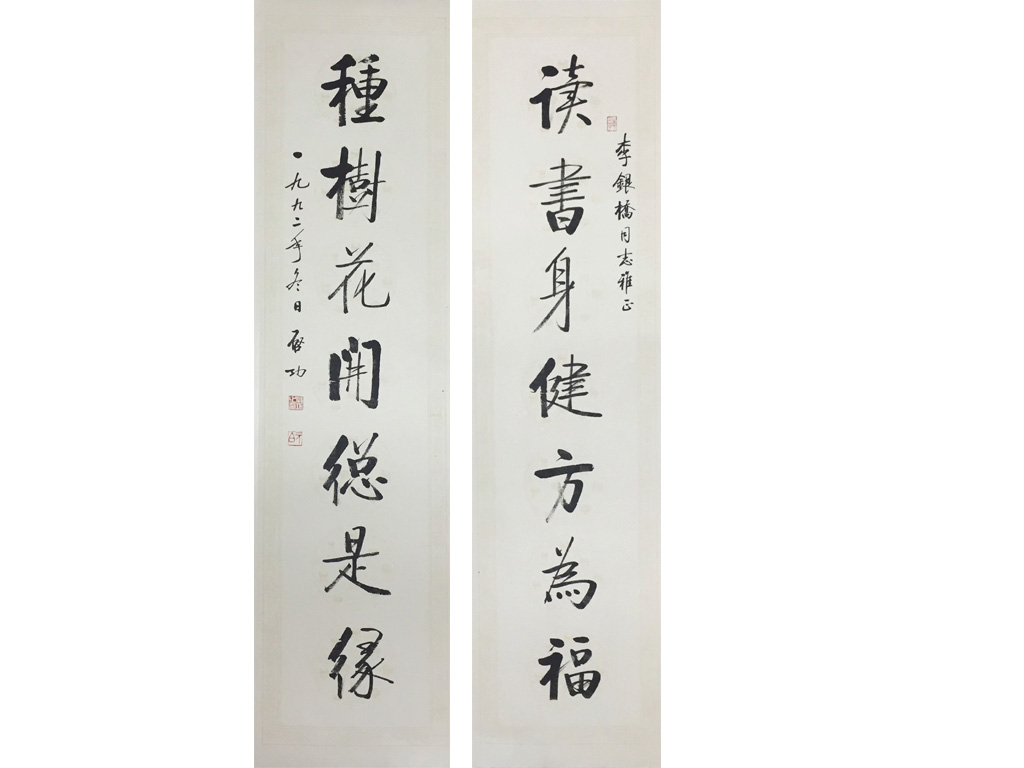 李銀橋同志雅正
读書身健方為福
種樹花開総是緣
一九九二年冬日 啓功